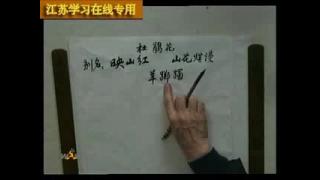 江苏学习在线专用
杜鹃花
别名：映山红 山花烂漫
羊踯躅